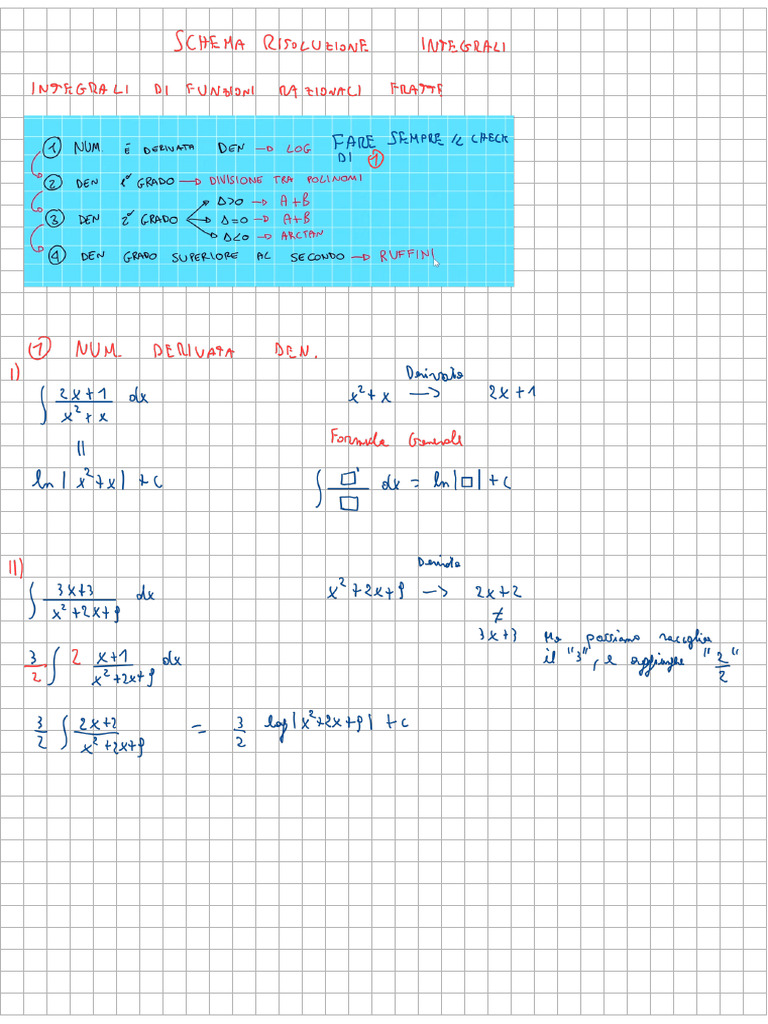 SCHEMA RISOLUZIONE INTEGRALI
INTEGRALI DI FUNZIONI RAZIONALI FRATTE
① NUM. È DERIVATA DEN → LOG FARE SEMPRE IL CHECK DI ①
② DEN 1° GRADO → DIVISIONE TRA POLINOMI
③ DEN 2° GRADO
Δ>0 → A+B
Δ=0 → A+B
Δ<0 → ARCTAN
④ DEN GRADO SUPERIORE AL SECONDO → RUFFINI
① NUM. DERIVATA DEN.
I)
∫ (2x+1)/(x²+x) dx x²+x Derivata → 2x+1
=
ln|x²+x| + c
Formula Generale
∫ □'/□ dx = ln|□| + c
II)
∫ (3x+3)/(x²+2x+9) dx x²+2x+9 Derivata → 2x+2
≠
3x+3 Ma possiamo raccogliere
il "3", e aggiungere "2/2"
3/2 ∫ 2 (x+1)/(x²+2x+9) dx
3/2 ∫ (2x+2)/(x²+2x+9) = 3/2 log|x²+2x+9| + c